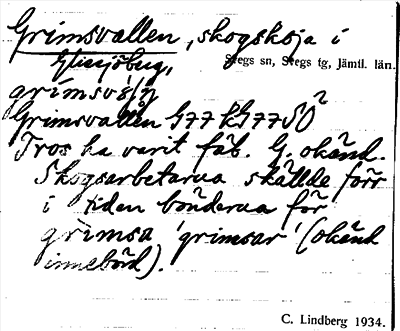 Grimsvallen, skogskoja i
Glissjöberg,
Svegs sn, Svegs tg, Jämtl. län.
Grimsvallen
Tros ha varit fäb. G. okänd.
Skogsarbetarna skällde förr
i tiden bönderna för
grimsa 'grimsar' (okänd
innebörd).
C. Lindberg 1934.